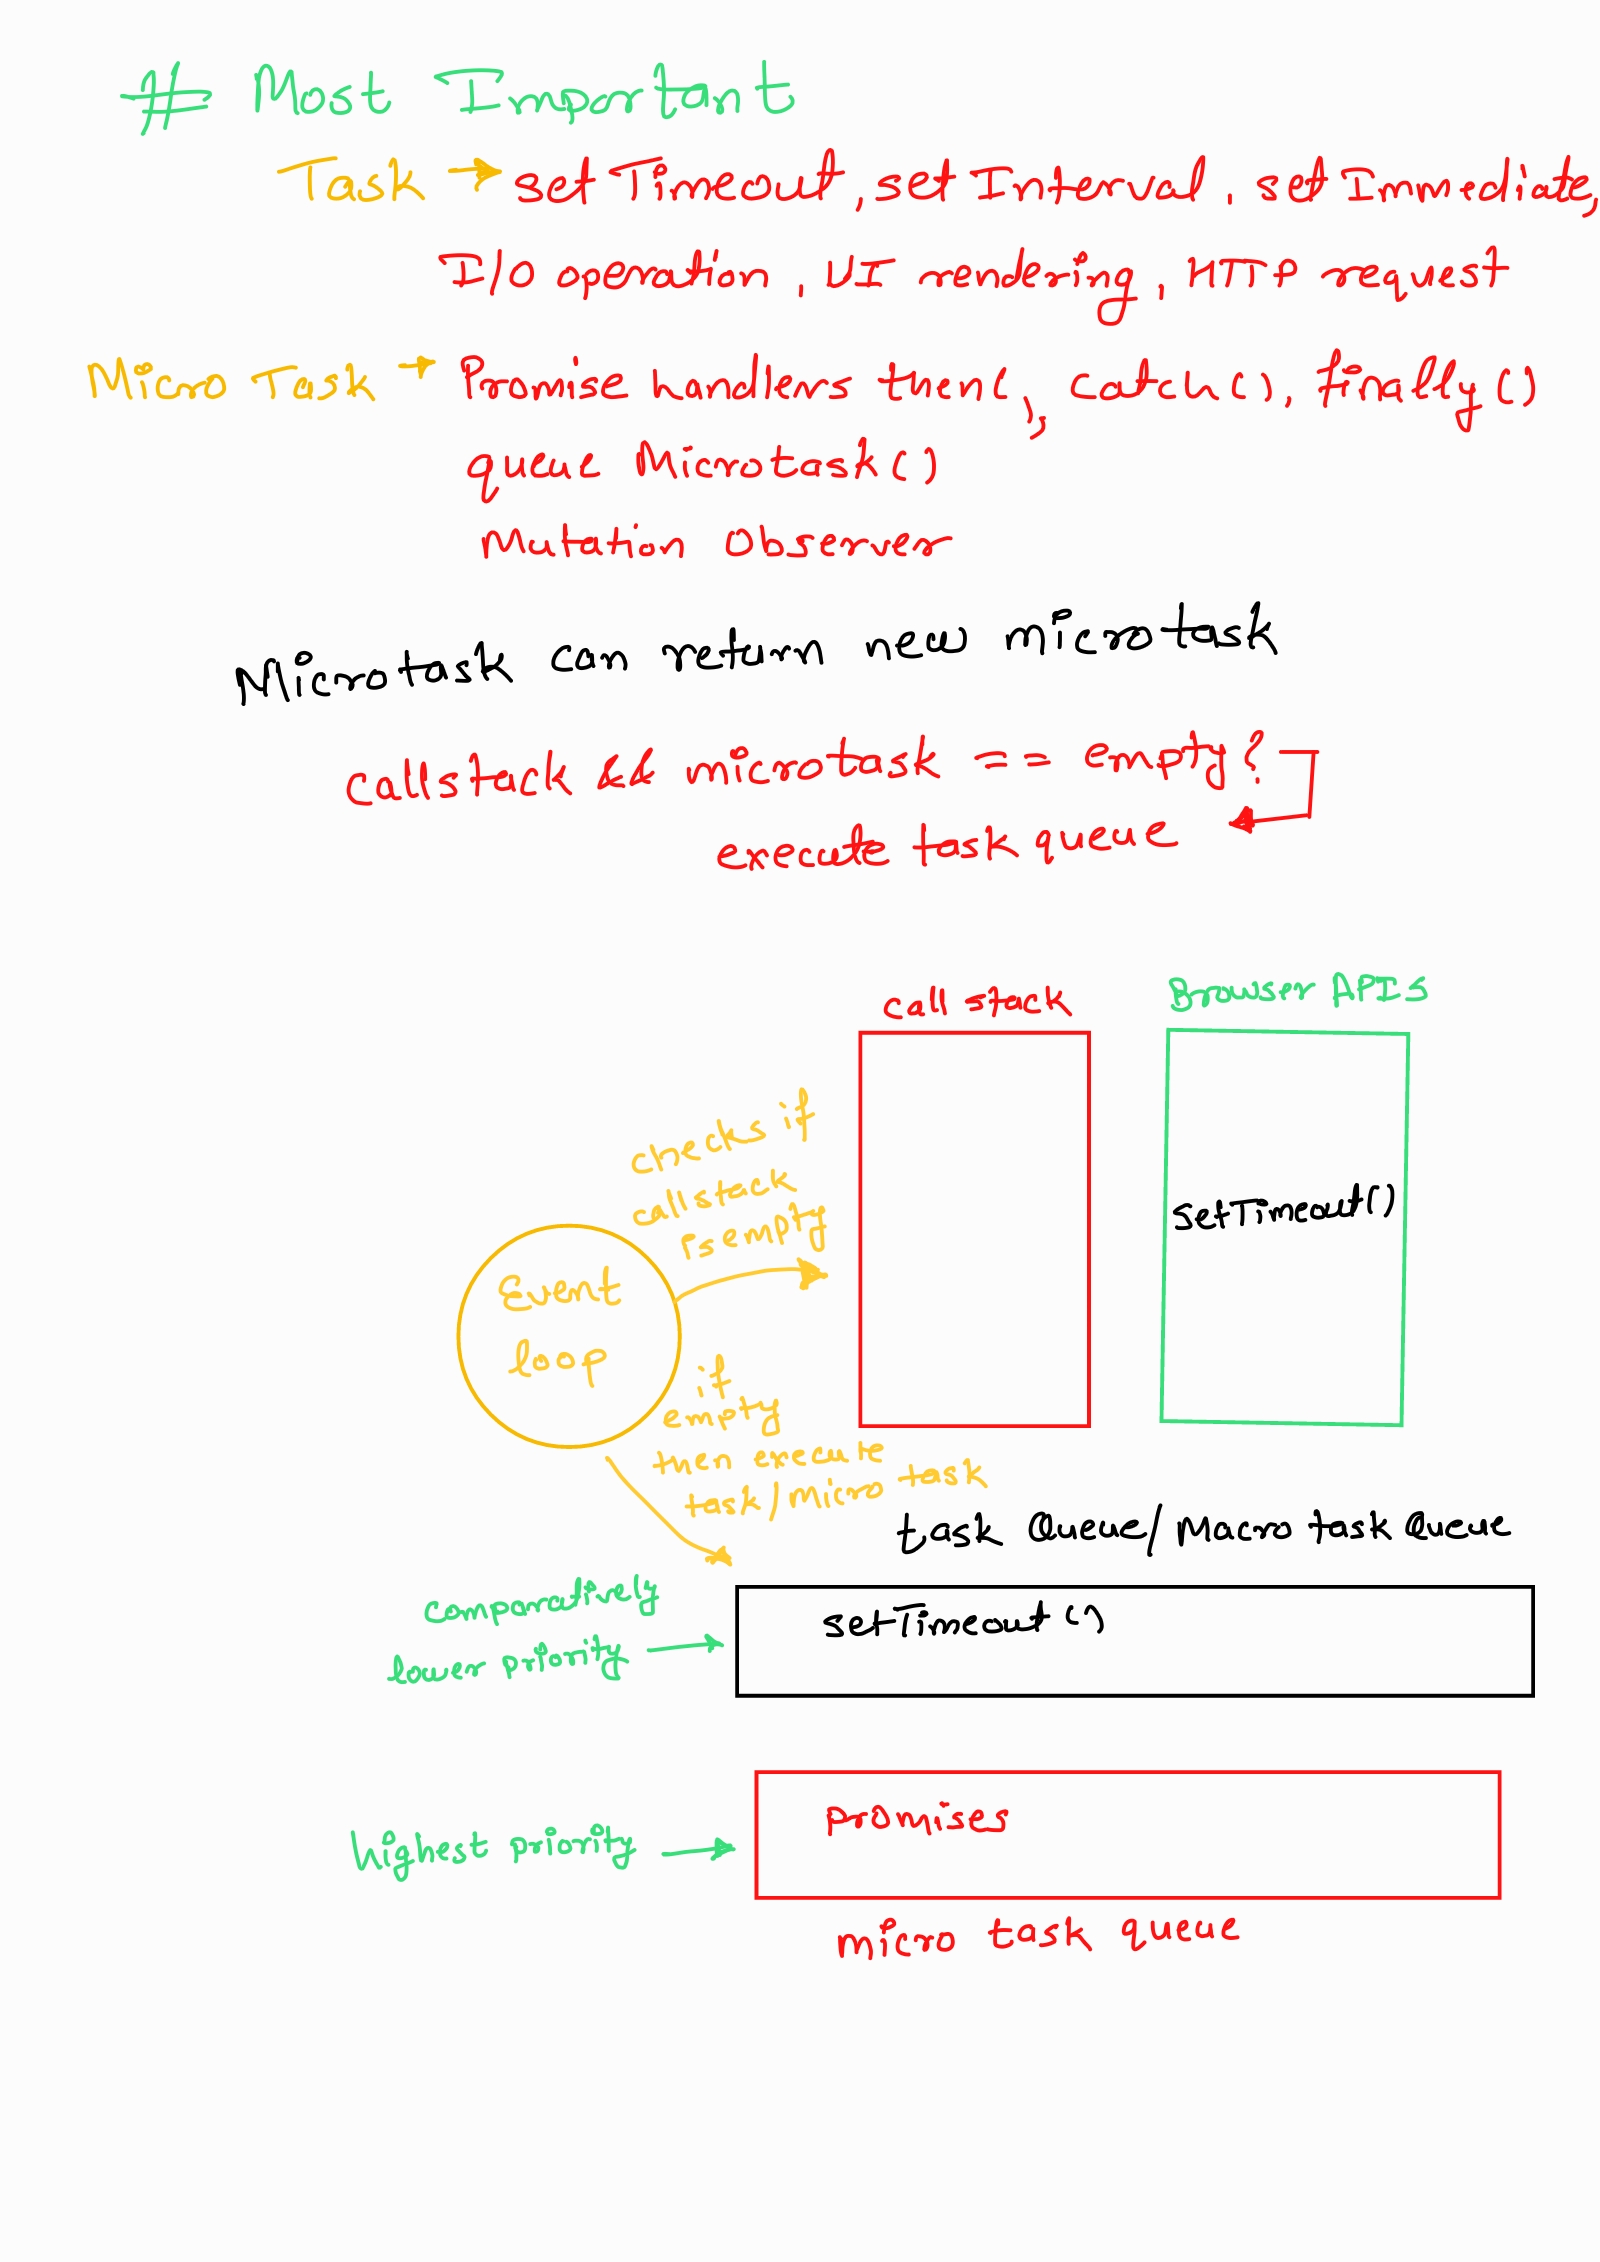 # Most Important
Task → setTimeout, setInterval, setImmediate,
I/O operation, UI rendering, HTTP request
Micro Task → Promise handlers then(), catch(), finally()
queue Microtask()
Mutation Observer
Microtask can return new microtask
callstack && microtask == empty?
execute task queue
call stack
Browser APIs
checks if
callstack
is empty
setTimeout()
Event
loop
if
empty
then execute
task/micro task
task Queue/Macro task Queue
comparatively
lower priority →
setTimeout()
highest priority →
Promises
micro task queue